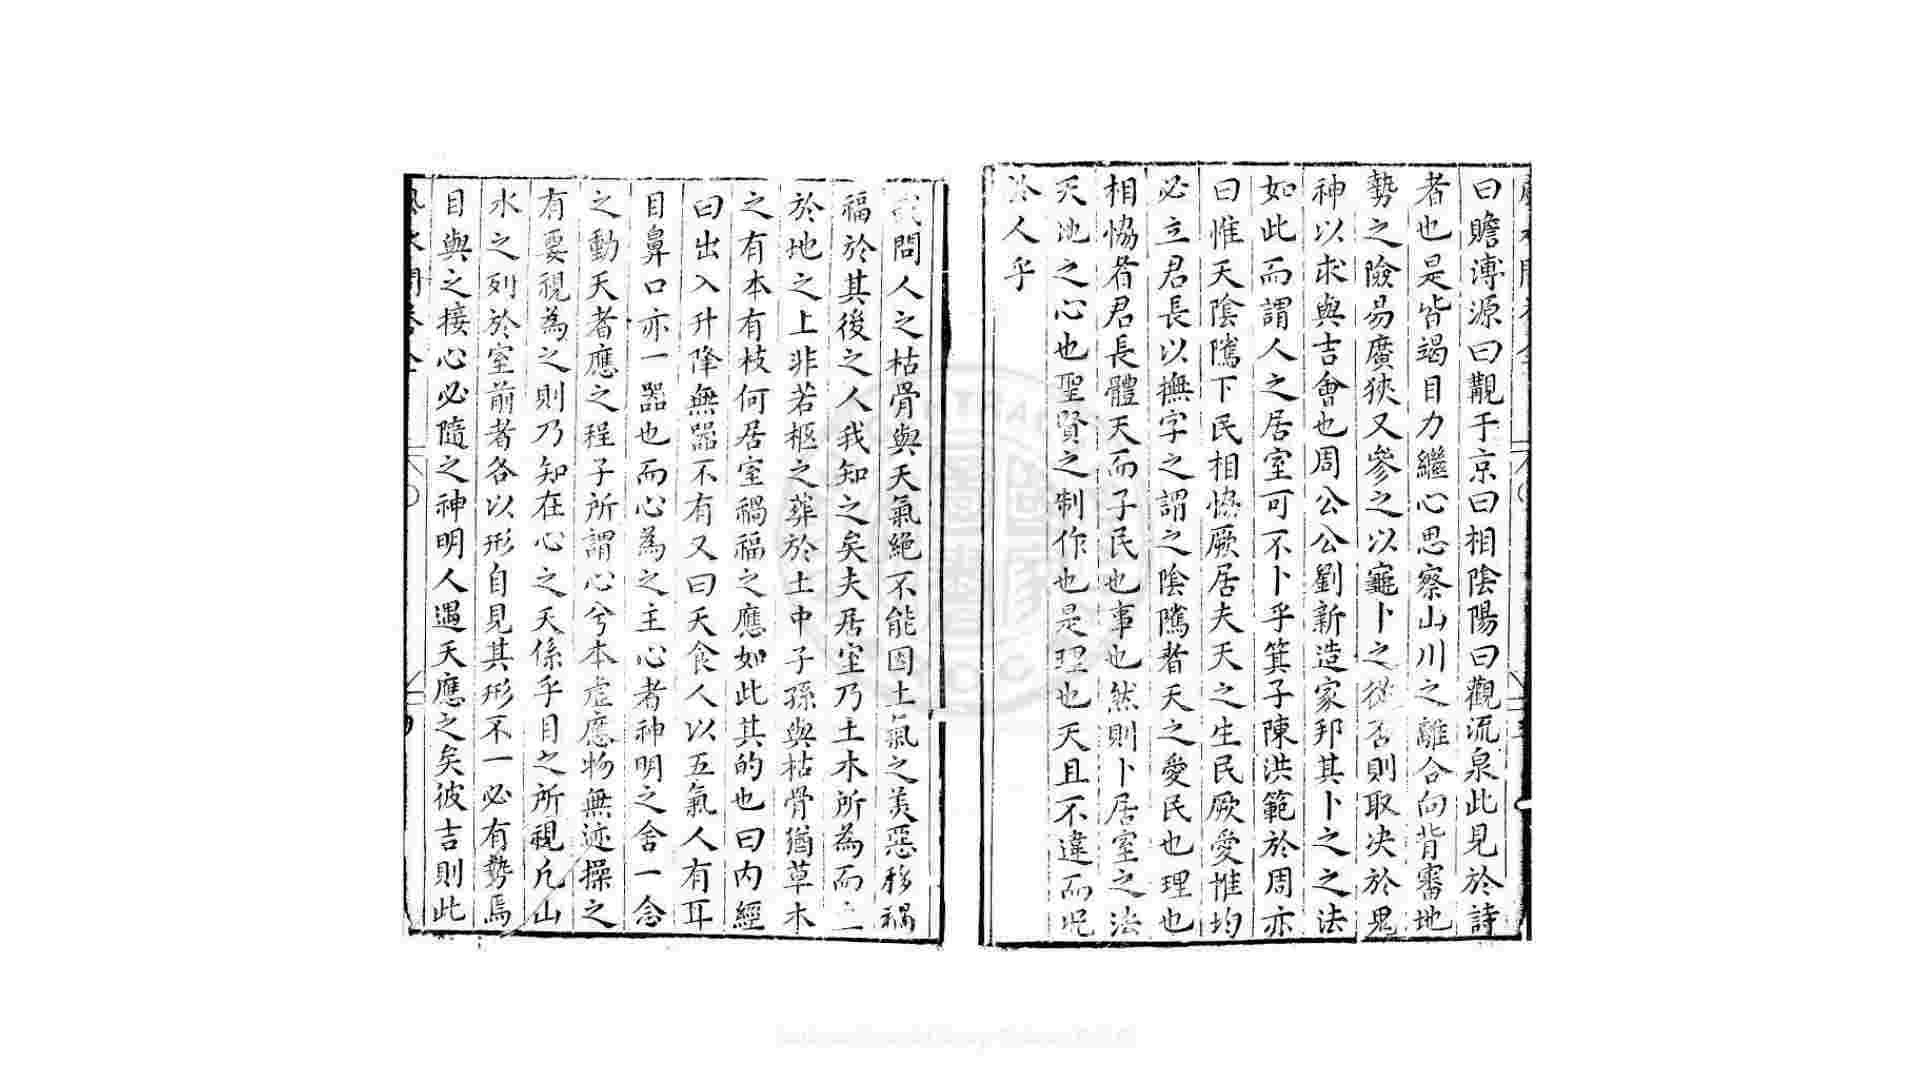 曰瞻溥源曰覯于京曰相陰陽曰觀流泉此見於詩
者也是皆竭目力繼心思察山川之離合向背審地
勢之險易廣狹又參之以龜卜之從否則取决於鬼
神以求與吉會也周公公劉新造家邦其卜之之法
如此而謂人之居室可不卜乎箕子陳洪範於周亦
曰惟天陰隲下民相恊厥居夫天之生民厥愛惟均
必立君長以撫字之謂之陰隲者天之愛民也理也
相恊者君長體天而子民也事也然則卜居室之法
天地之心也聖賢之制作也是理也天且不違而况
於人乎
或問人之枯骨與天氣絶不能因土氣之美惡移禍
福於其後之人我知之矣夫居室乃土木所為而立
於地之上非若柩之葬於土中子孫與枯骨猶草木
之有本有枝何居室禍福之應如此其的也曰内經
曰出入升降無器不有又曰天食人以五氣人有耳
目鼻口亦一器也而心為之主心者神明之舍一念
之動天者應之程子所謂心兮本虚應物無迹操之
有要視為之則乃知在心之天係乎目之所視凡山
水之列於室前者各以形自見其形不一必有勢焉
目與之接心必隨之神明人遇天應之矣彼吉則此